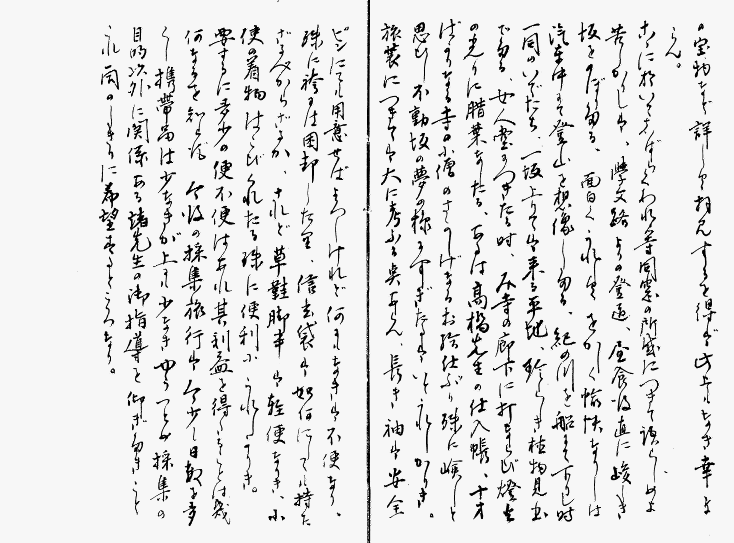 の宝物など詳しく拝見するを得ば此上もなき幸な
らん。
こゝに於いてしばらくわれ等同窓の所感につきて語らしめよ
苦しかりしは、学文路よりの登道、昼食後直に峻しき
坂をのぼりたる、面白くうれしく をかしく愉快なりしは
汽車中にて登山を想像したる、紀の川を船にて下りし時
一同のいでたち、一坂上りては来る平地、珍らしき植物見出
でたる、女人堂につきたる時、み寺の廊下に打ならび燈火
の光りに腊葉なしたる、あるは高橋先生の仕入帳、十才
ばかりなる寺の小僧のさゝげまゐるお給仕ぶり殊に嶮しと
思ひし不動坂の夢の様にすぎたるはいとうれしかりき。
旅装につきては大に考ふる点あらん、長き袖は安全
ピンにても用意せばよろしけれど何にもなきは不便なり、
殊に袴には困却したり、信玄袋も如何にしても持た
ざるべからざるか、されど草鞋脚半は軽便なりき、小
使の荷物はこびくれたる殊に便利にうれしかりき。
要するに多少の便不便はあれ其利益を得しことは幾
何なるを知らず、今後の採集旅行は今少し日数を多
くし携帯品は少なきが上にも少なき やうつとめ採集の
目的以外に関係ある諸先生の御指導を仰ぎたきこと
われ一同のしきりに希望するところなり。